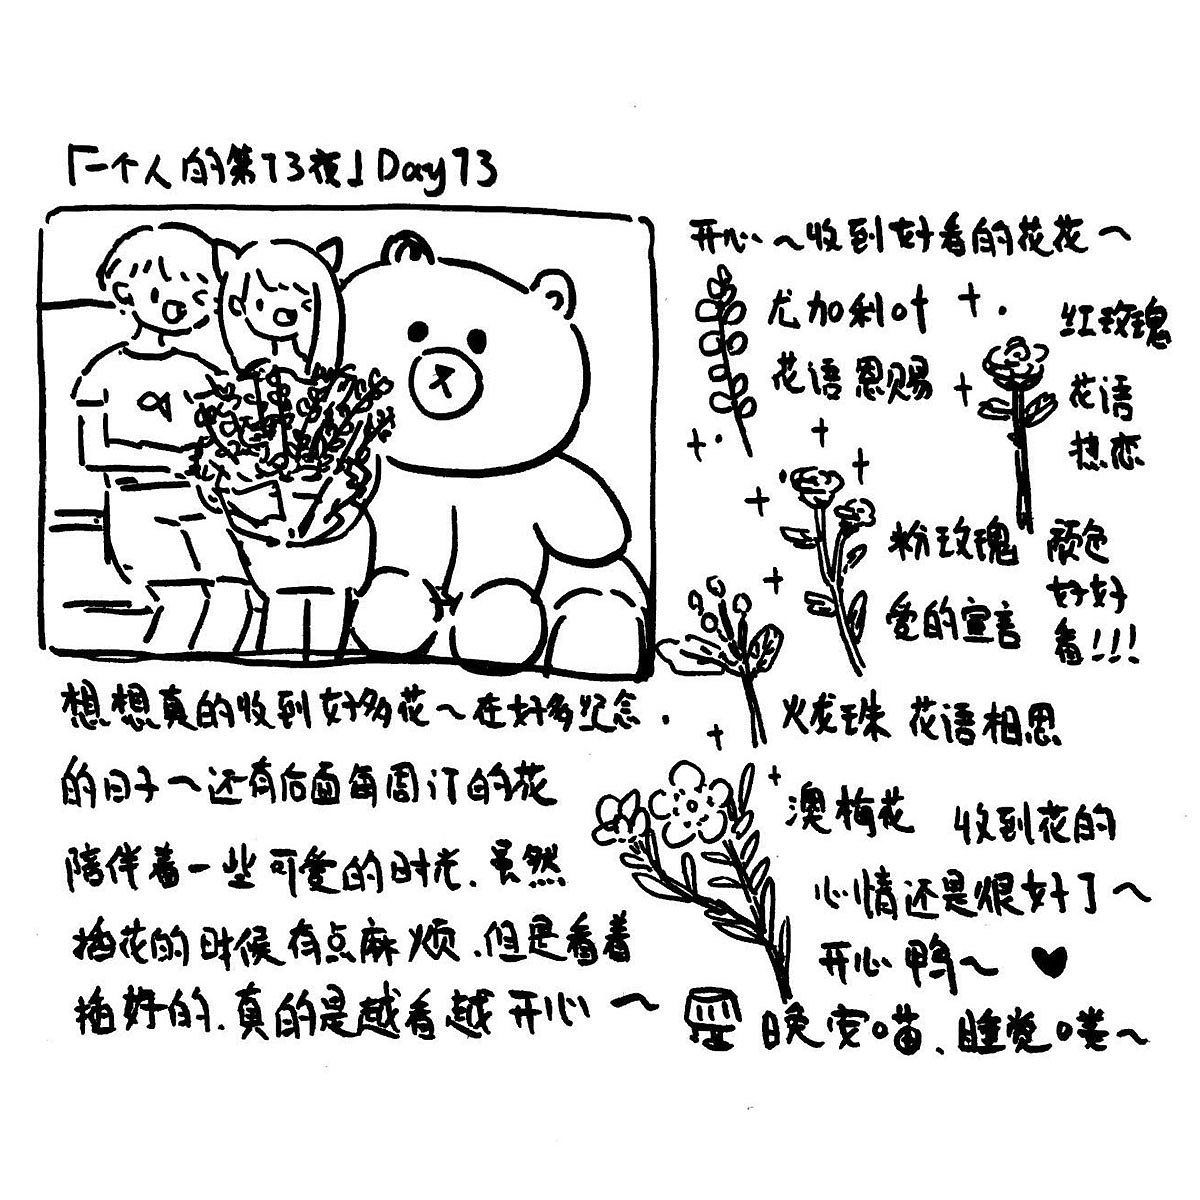 「一个人的第73夜」Day73
开心～收到好看的花花～
尤加利叶
花语恩赐
红玫瑰
花语
热恋
粉玫瑰
爱的宣言
颜色
好好
看!!!
火龙珠 花语相思
澳梅花
收到花的
心情还是很好了～
开心鸭～
晚安喵、睡觉喽～
想想真的收到好多花～在好多纪念
的日子～还有后面每周订的花
陪伴着一些可爱的时光、虽然
插花的时候有点麻烦、但是看着
插好的、真的是越看越开心～